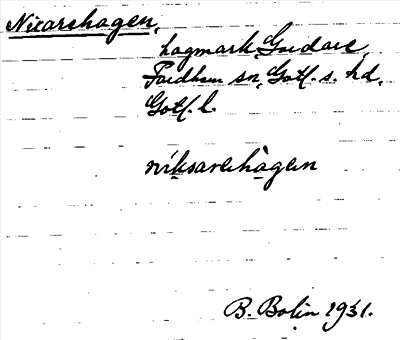 Nixarehagen,
hagmark, Gardare,
Fardhem sn, Gotl. s. hd,
Gotl. l.
níksarehàgen
B. Bolin 1931.